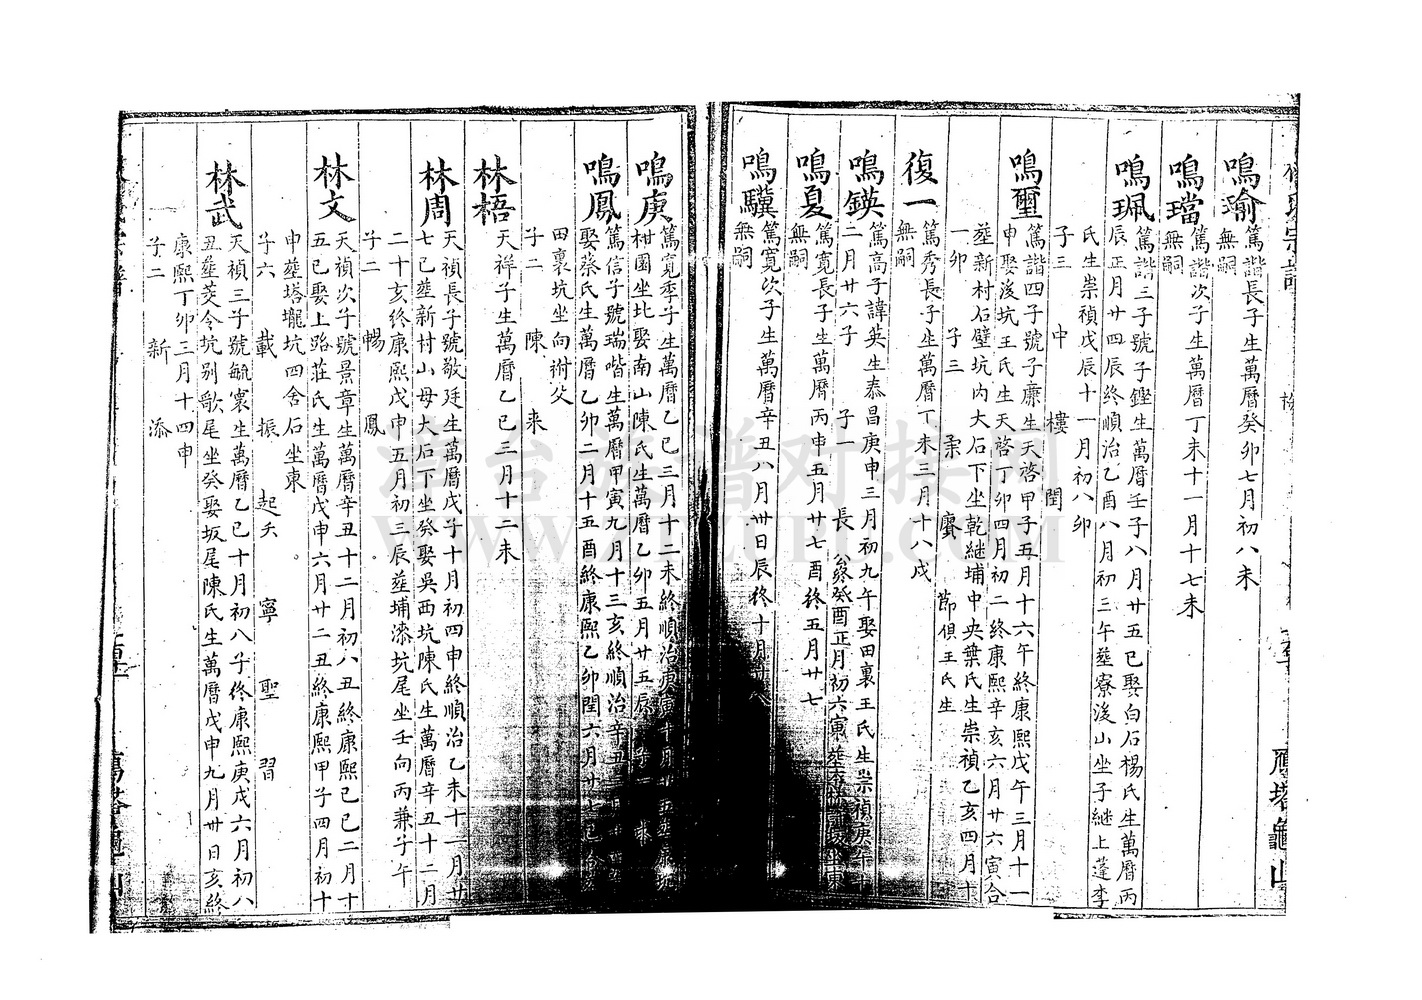 鳴瑜
篤諧長子生萬曆癸卯七月初八未
無嗣
鳴璫
篤諧次子生萬曆丁未十一月十七未
無嗣
鳴珮
篤諧三子號子鏗生萬曆壬子八月廿五巳娶白石楊氏生萬曆丙
辰正月廿四辰終順治乙酉八月初三午塟寮後山坐子継上蓬李
氏生崇禎戊辰十一月初八卯
子三 中 樓 閏
鳴璽
篤諧四子號子廉生天啓甲子五月十六午終康熙戊午三月十一
申娶後坑王氏生天啓丁卯四月初二終康熙辛亥六月廿六寅合
塟新村石壁坑内大石下坐乾継埔中央葉氏生崇禎乙亥四月十
一卯 子三 節俱王氏生
復一
篤秀長子生萬曆丁未三月十八戌
無嗣
鳴鍈
篤高子諱英生泰昌庚申三月初九午娶田裏王氏生崇禎庚午十
二月廿六子 子一 長 公終癸酉正月初六寅
鳴夏
篤寬長子生萬曆丙申五月廿七酉終五月廿七
無嗣
鳴驥
篤寬次子生萬曆辛丑八月卅日辰終十月
無嗣
鳴庚
篤寬季子生萬曆乙巳三月十二未終順治庚寅
柑園坐北娶南山陳氏生萬曆乙卯五月廿五辰 子一
鳴鳳
篤信子號瑞喈生萬曆甲寅九月十三亥終順治辛丑
娶蔡氏生萬曆乙卯二月十五酉終康熙乙卯閏六月廿七巳
田裏坑坐向祔父
子二 陳 来
林梧
天祥子生萬曆乙巳三月十二未
林周
天禎長子號敬廷生萬曆戊子十月初四申終順治乙未十一月廿
七巳塟新村山母大石下坐癸娶吳西坑陳氏生萬曆辛丑十二月
二十亥終康熙戊申五月初三辰塟埔漆坑尾坐壬向丙兼子午
子二 暢 鳳
林文
天禎次子號景章生萬曆辛丑十二月初八丑終康熙己巳二月十
五巳娶上路莊氏生萬曆戊申六月廿二丑終康熙甲子四月初十
申塟塔壠坑四舍石坐東
子六 載 振 起夭 寧 聖 習
林武
天禎三子號毓寰生萬曆乙巳十月初八子終康熙庚戌六月初八
丑塟茭令坑别歌尾坐癸娶坂尾陳氏生萬曆戊申九月廿日亥終
康熙丁卯三月十四申
子二 新 添
雁塔龜山